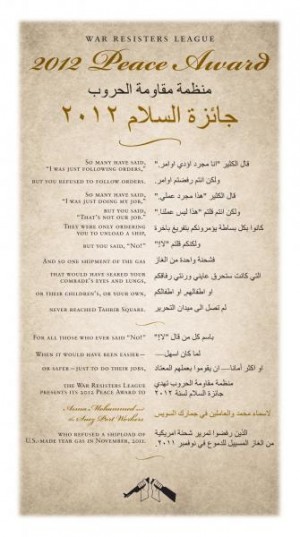 WAR RESISTERS LEAGUE
2012 Peace Award
منظمة مقاومة الحروب
جائزة السلام ٢٠١٢
So many have said,
"I was just following orders,"
but you refused to follow orders.
So many have said,
"I was just doing my job,"
but you said,
"That's not our job."
They were only ordering
you to unload a ship,
but you said, "No!"
And so one shipment of the gas
that would have seared your
comrade's eyes and lungs,
or their children's, or your own,
never reached Tahrir Square.
For all those who ever said "No!"
When it would have been easier—
or safer—just to do their jobs,
the War Resisters League
presents its 2012 Peace Award to
Asma Mohammed and
the Suez Port Workers
who refused a shipload of
U.S.-made tear gas in November, 2011.
قال الكثير "انا مجرد اؤدي اوامر."
ولكن انتم رفضتم اوامر.
قال الكثير "هذا مجرد عملي."
ولكن انتم قلتم "هذا ليس عملنا."
كانوا بكل بساطة يؤمرونكم بتفريغ باخرة
ولكنكم قلتم "لا!"
فشحنة واحدة من الغاز
التي كانت ستحرق عايني ورئتي رفاقكم
او اطفالهم او اطفالكم
لم تصل الى ميدان التحرير
باسم كل من قال "لا!"
لما كان اسهل—
او اكثر أمانا—ان يقوموا بعملهم المعتاد
منظمة مقاومة الحروب تهدي
جائزة السلام لسنة ٢٠١٢
لاسماء محمد والعاملين في جمارك السويس
الذين رفضوا تمرير شحنة امريكية
من الغاز المسيل للدموع في نوفمبر ٢٠١١.